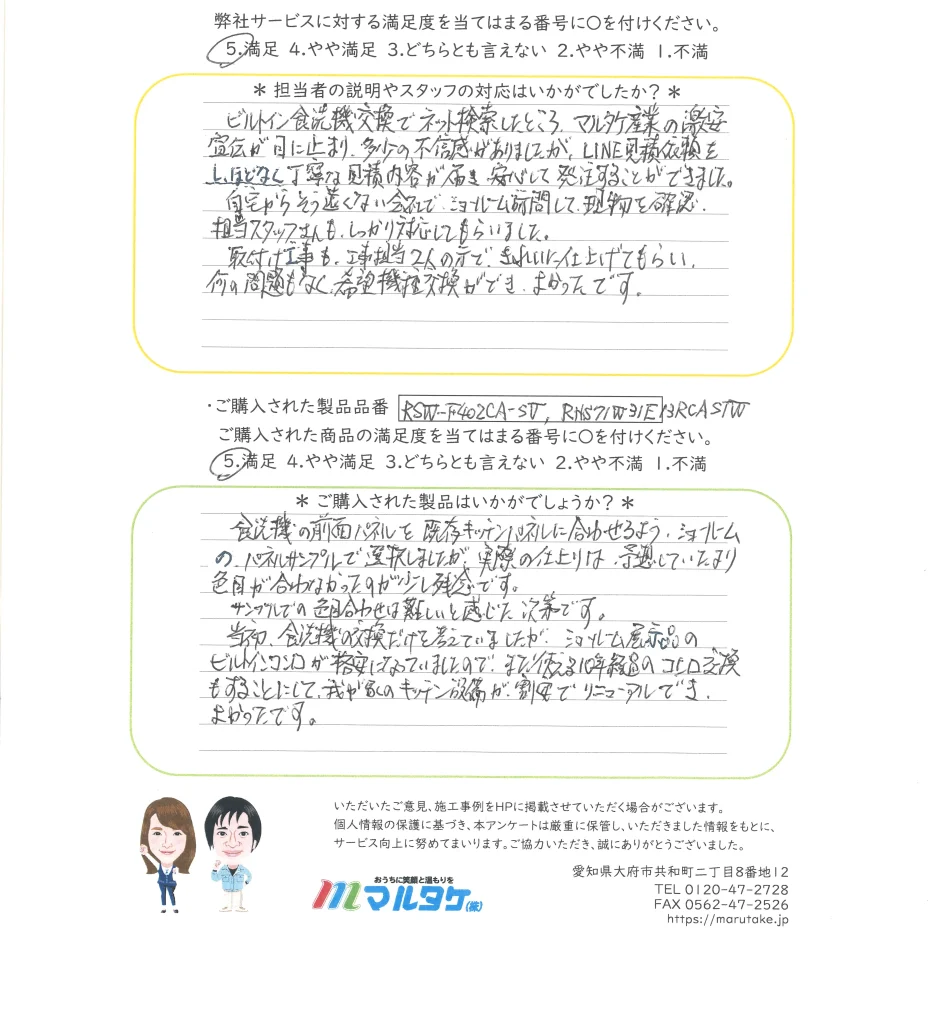 弊社サービスに対する満足度を当てはまる番号に〇を付けください。
5.満足 4.やや満足 3.どちらとも言えない 2.やや不満 1.不満
＊ 担当者の説明やスタッフの対応はいかがでしたか？ ＊
ビルトイン食洗機交換でネット検索したところ、マルタケ産業の激安
宣伝が目に止まり、多少の不信感がありましたが、LINE見積依頼を
し、ほどなく丁寧な見積内容が届き、安心して発注することができました。
自宅からそう遠くない会社で、ショールーム訪問して、現物を確認、
担当スタッフさんも、しっかり対応してもらいました。
取付け工事も、工事担当2人の方で、きれいに仕上げてもらい、
何の問題もなく、希望機種交換ができ、よかったです。
・ご購入された製品品番 RSW-F402CA-SV, RHS71W31E13RCASTW
ご購入された商品の満足度を当てはまる番号に〇を付けください。
5.満足 4.やや満足 3.どちらとも言えない 2.やや不満 1.不満
＊ ご購入された製品はいかがでしょうか？ ＊
食洗機の前面パネルを既存キッチンパネルに合わせるよう、ショールーム
の、パネルサンプルで選択しましたが、実際の仕上りは、予想していたより
色目が合わなかったのが少し残念です。
サンプルでの色目合わせは難しいと感じた次第です。
当初、食洗機の交換だけを考えていましたが、ショールーム展示品の
ビルトインコンロが格安になっていましたので、まだ使える10年経過のコンロ交換
もすることにして、我が家のキッチン設備が、割安でリニューアルでき、
よかったです。
いただいたご意見、施工事例をHPに掲載させていただく場合がございます。
個人情報の保護に基づき、本アンケートは厳重に保管し、いただきました情報をもとに、
サービス向上に努めてまいります。ご協力いただき、誠にありがとうございました。
おうちに笑顔と温もりを
マルタケ(株)
愛知県大府市共和町二丁目8番地12
TEL 0120-47-2728
FAX 0562-47-2526
https://marutake.jp